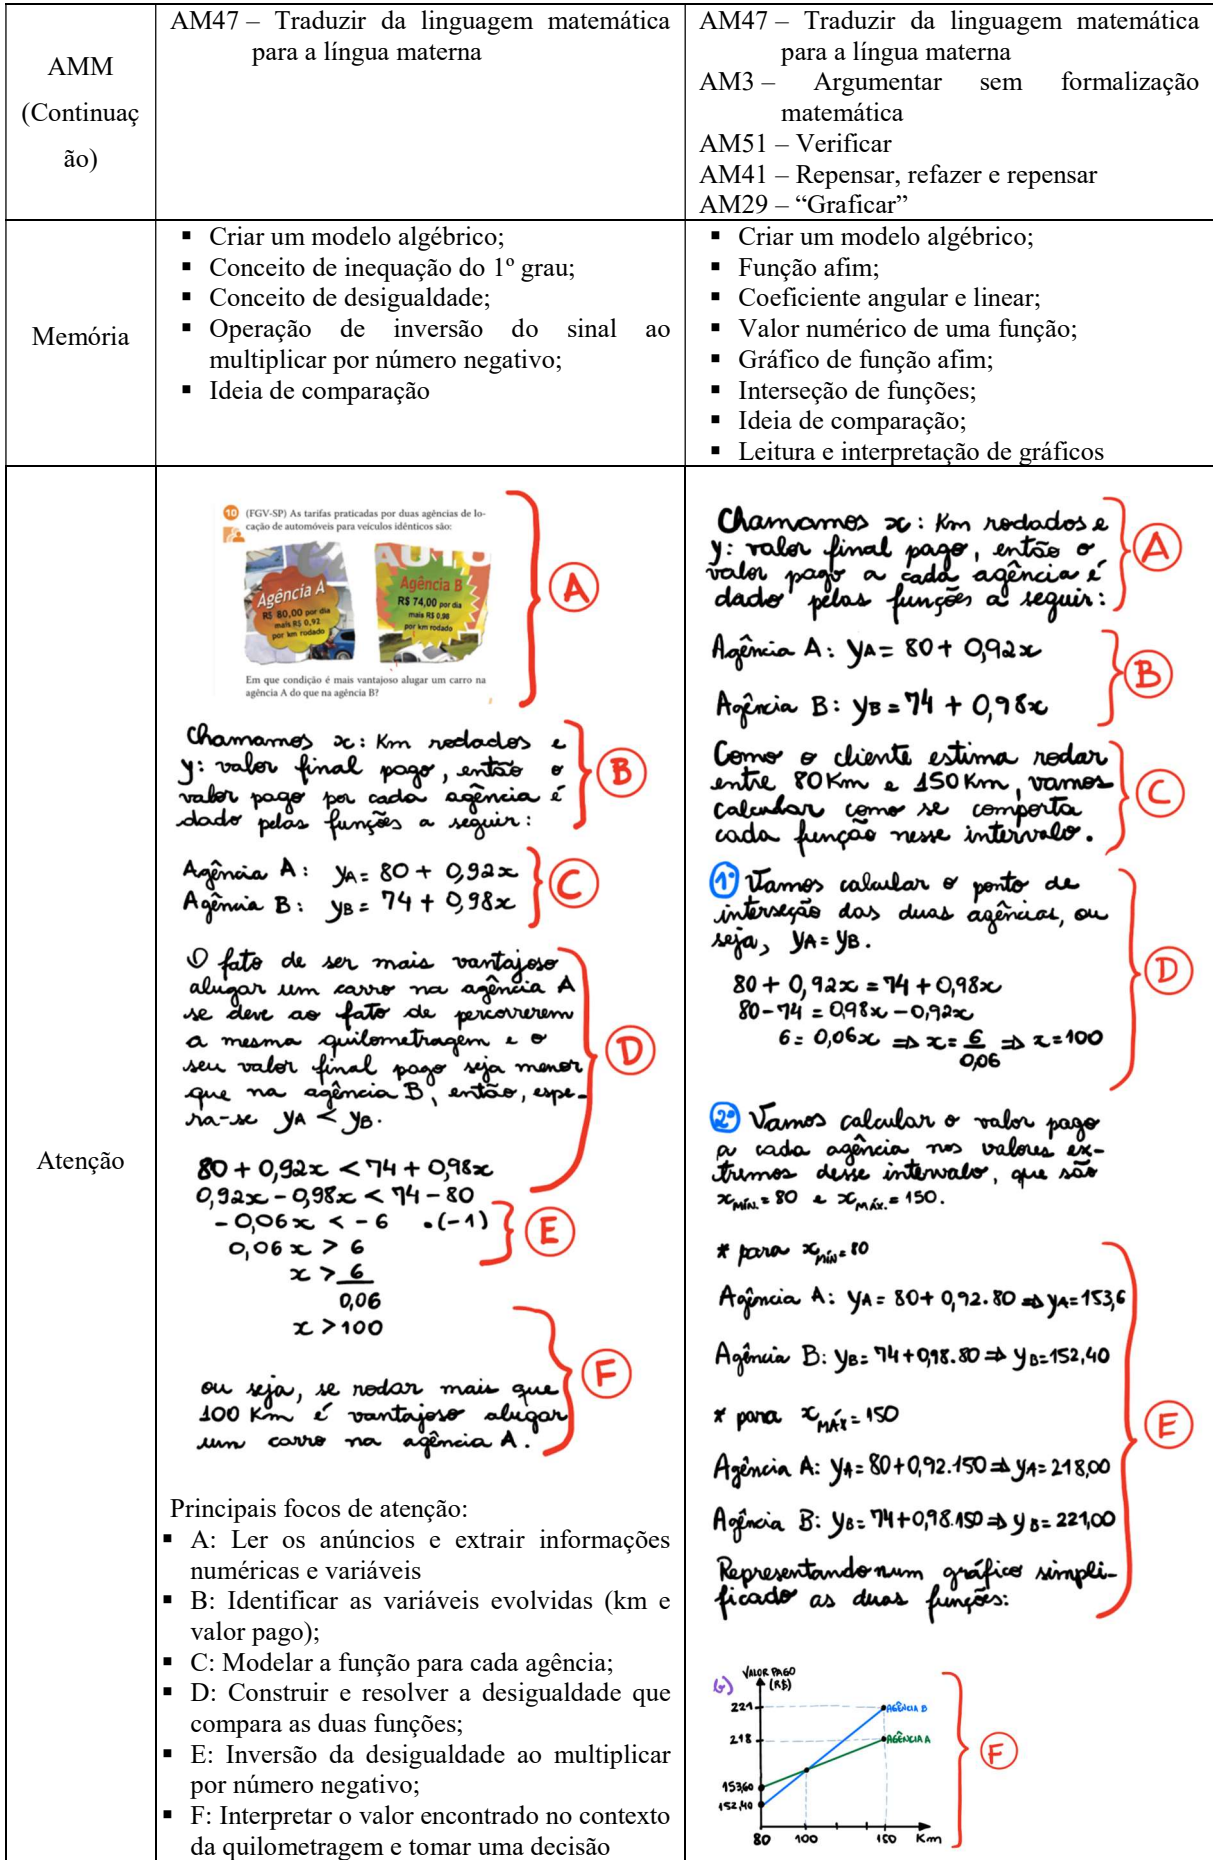 AMM
(Continuaç
ão)
AM47 – Traduzir da linguagem matemática
para a língua materna
AM47 – Traduzir da linguagem matemática
para a língua materna
AM3 – Argumentar sem formalização
matemática
AM51 – Verificar
AM41 – Repensar, refazer e repensar
AM29 – “Graficar”
Memória
▪ Criar um modelo algébrico;
▪ Conceito de inequação do 1º grau;
▪ Conceito de desigualdade;
▪ Operação de inversão do sinal ao
multiplicar por número negativo;
▪ Ideia de comparação
▪ Criar um modelo algébrico;
▪ Função afim;
▪ Coeficiente angular e linear;
▪ Valor numérico de uma função;
▪ Gráfico de função afim;
▪ Interseção de funções;
▪ Ideia de comparação;
▪ Leitura e interpretação de gráficos
Atenção
10 (FGV-SP) As tarifas praticadas por duas agências de lo-
cação de automóveis para veículos idênticos são:
Agência A
R$ 80,00 por dia
mais R$ 0,92
por km rodado
AUTO
Agência B
R$ 74,00 por dia
mais R$ 0,98
por km rodado
Em que condição é mais vantajoso alugar um carro na
agência A do que na agência B?
A
Chamamos x: Km rodados e
y: valor final pago, então o
valor pago por cada agência é
dado pelas funções a seguir:
B
Agência A: yA = 80 + 0,92x
Agência B: yB = 74 + 0,98x
C
O fato de ser mais vantajoso
alugar um carro na agência A
se deve ao fato de percorrerem
a mesma quilometragem e o
seu valor final pago seja menor
que na agência B, então, espe-
ra-se yA < yB.
80 + 0,92x < 74 + 0,98x
0,92x - 0,98x < 74 - 80
D
- 0,06x < - 6 .(-1)
0,06x > 6
E
x > 6
0,06
x > 100
ou seja, se rodar mais que
100 Km é vantajoso alugar
um carro na agência A.
F
Principais focos de atenção:
▪ A: Ler os anúncios e extrair informações
numéricas e variáveis
▪ B: Identificar as variáveis evolvidas (km e
valor pago);
▪ C: Modelar a função para cada agência;
▪ D: Construir e resolver a desigualdade que
compara as duas funções;
▪ E: Inversão da desigualdade ao multiplicar
por número negativo;
▪ F: Interpretar o valor encontrado no contexto
da quilometragem e tomar uma decisão
Chamamos x: Km rodados e
y: valor final pago, então o
valor pago a cada agência é
dado pelas funções a seguir:
A
Agência A: yA = 80 + 0,92x
Agência B: yB = 74 + 0,98x
B
Como o cliente estima rodar
entre 80Km e 150Km, vamos
calcular como se comporta
cada função nesse intervalo.
C
1º Vamos calcular o ponto de
interseção das duas agências, ou
seja, yA = yB.
80 + 0,92x = 74 + 0,98x
80 - 74 = 0,98x - 0,92x
6 = 0,06x ⇒ x = 6 ⇒ x = 100
0,06
D
2º Vamos calcular o valor pago
a cada agência nos valores ex-
tremos desse intervalo, que são
xMÍN. = 80 e xMÁX. = 150.
* para xMÍN = 80
Agência A: yA = 80 + 0,92.80 ⇒ yA = 153,6
Agência B: yB = 74 + 0,98.80 ⇒ yB = 152,40
* para xMÁX = 150
Agência A: yA = 80 + 0,92.150 ⇒ yA = 218,00
Agência B: yB = 74 + 0,98.150 ⇒ yB = 221,00
Representando num gráfico simpli-
ficado as duas funções:
E
VALOR PAGO
(R$)
221
218
153,60
152,40
AGÊNCIA B
AGÊNCIA A
80 100 150 Km
F